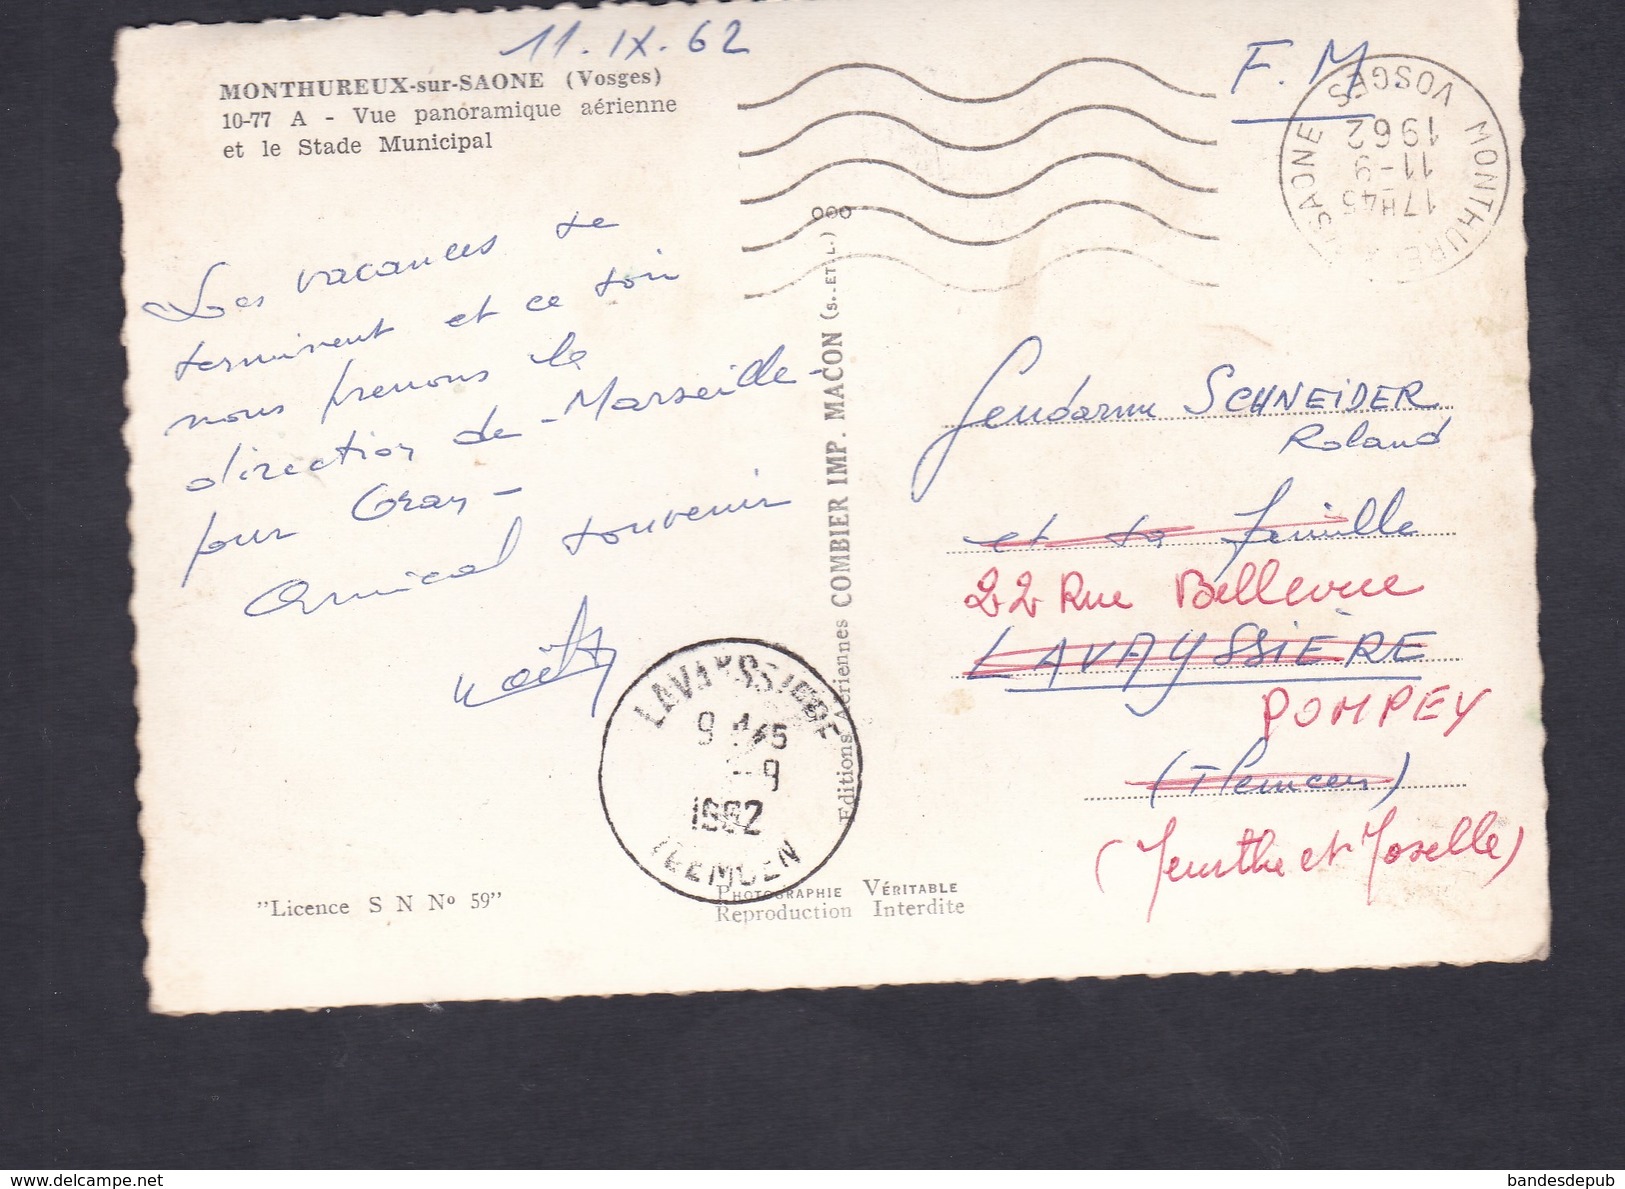 11.IX.62
MONTHUREUX-sur-SAONE (Vosges)
10-77 A - Vue panoramique aérienne
et le Stade Municipal
F.M.
MONTHUREUX S/SAONE
VOSGES
17H45
11-9
1962
Les vacances se
terminent et ce soir
nous prenons la
direction de Marseille -
pour Oran -
Amical souvenir
Editions Aériennes COMBIER IMP. MACON (S.-ET-L.) ooo
Gendarme SCHNEIDER
Roland
et sa famille
22 Rue Bellevue
LAVAYSSIÈRE
POMPEY
(Tlemcen)
(Meurthe et Moselle)
LAVAYSSIERE
-9
1962
TLEMCEN
"Licence S N No 59"
PHOTOGRAPHIE VÉRITABLE
Reproduction Interdite
bandesdepub